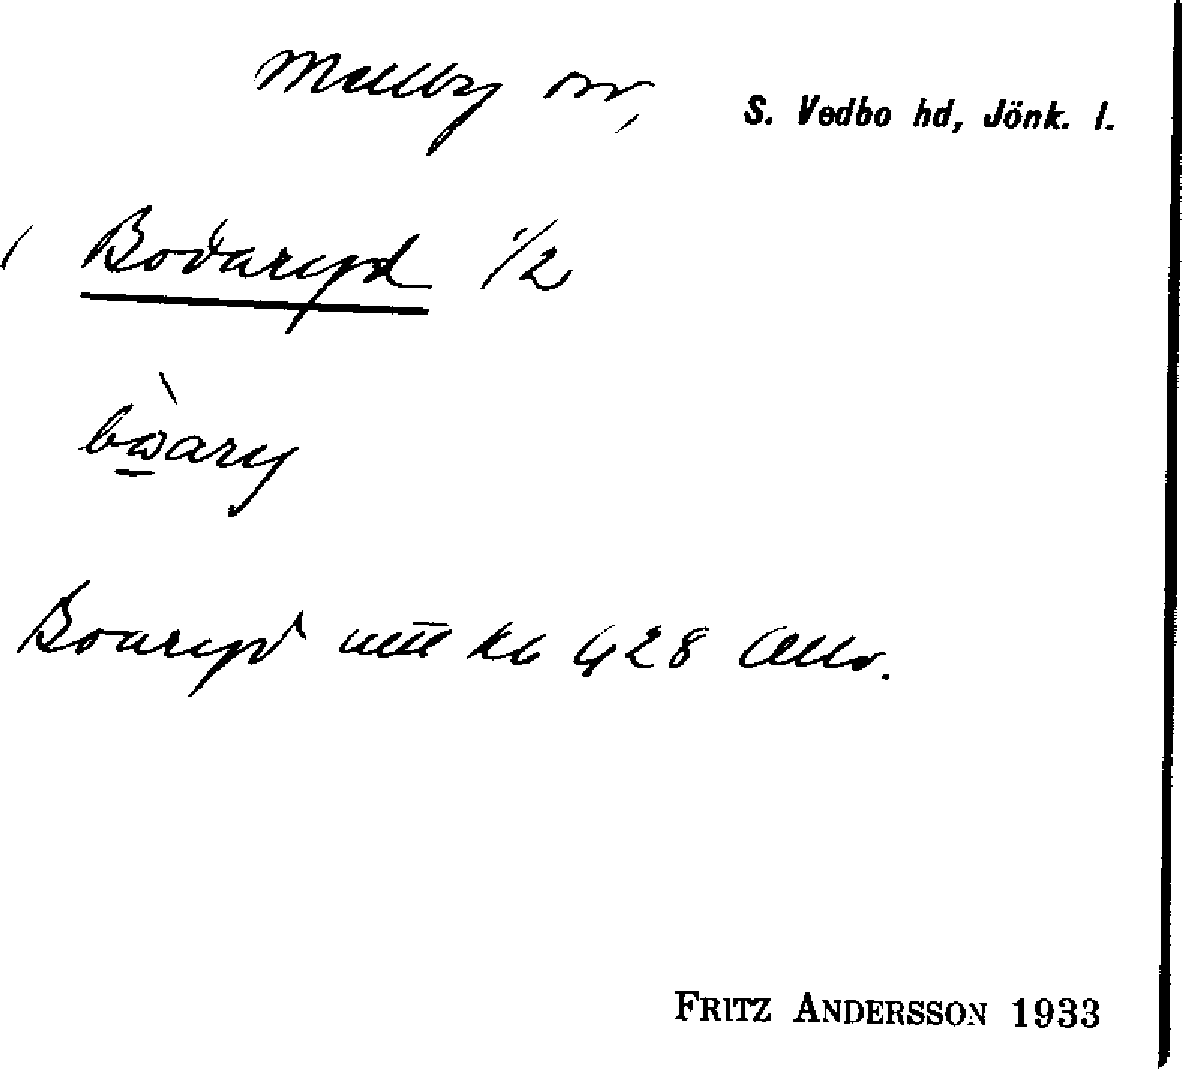 Mellby sn, S. Vedbo hd, Jönk. l.
Bodaryd 1/2
bωary
Boaryd kb 428
FRITZ ANDERSSON 1933